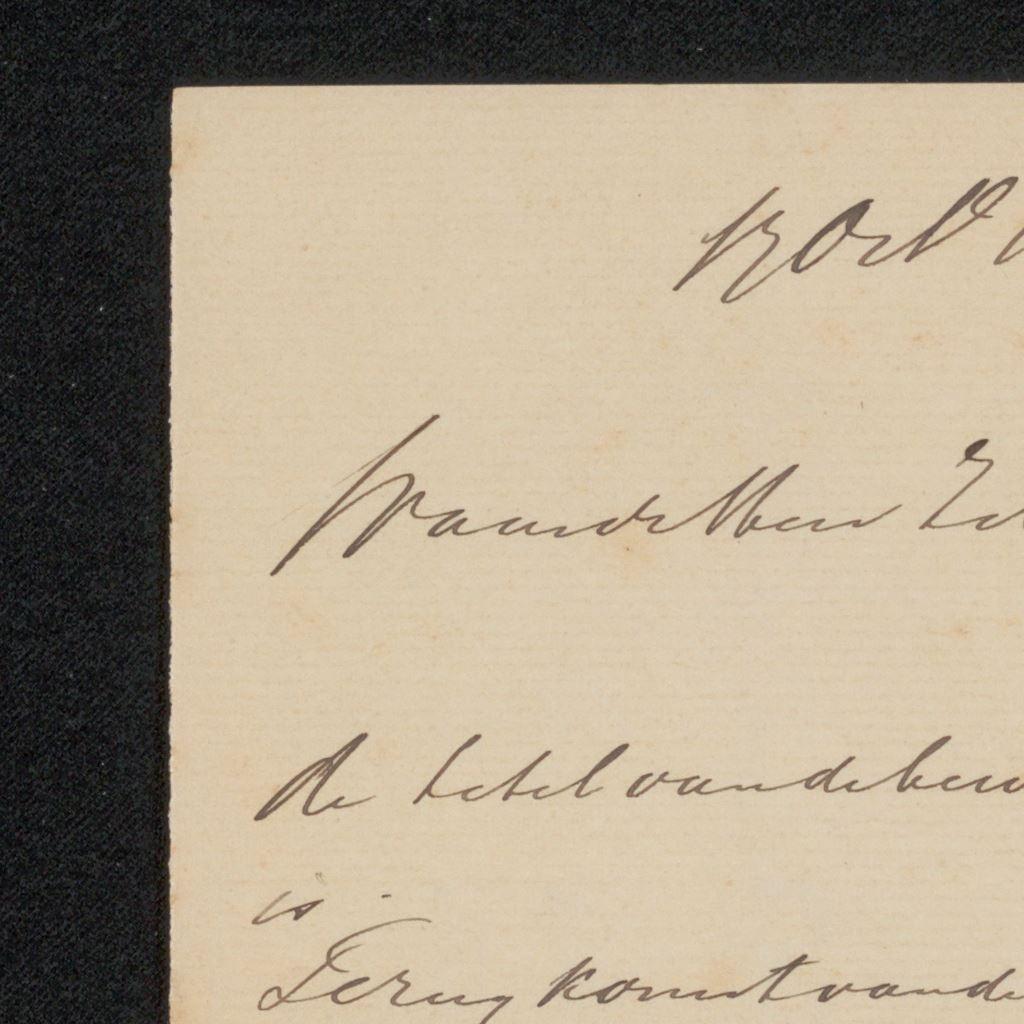 13 Oct
Waarde Heer
de titel van de
is
Terugkomst van de